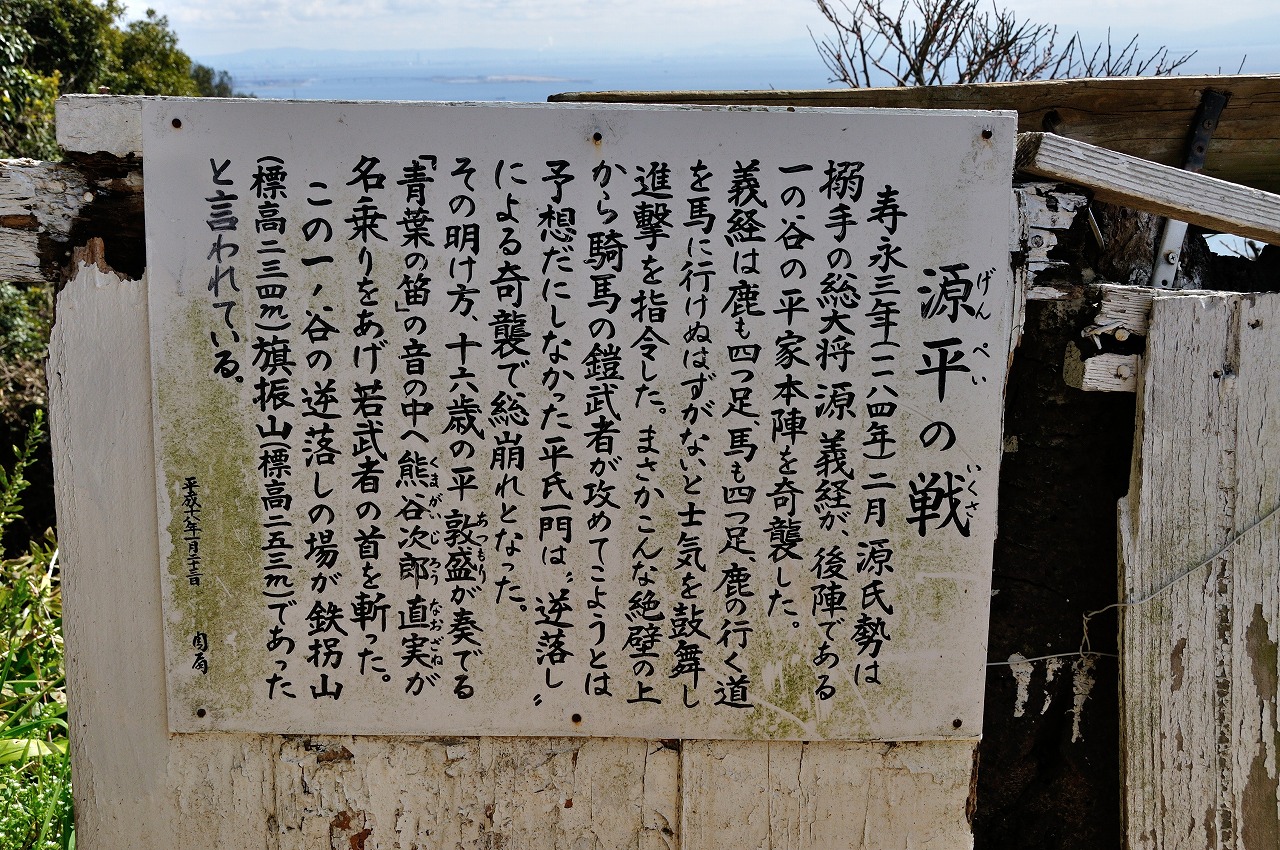 源平の戦
げん ぺい いくさ
寿永三年(一一八四年)二月 源氏勢は
搦手の総大将 源 義経が、後陣である
一の谷の平家本陣を奇襲した。
義経は鹿も四つ足、馬も四つ足、鹿の行く道
を馬に行けぬはずがないと士気を鼓舞し
進撃を指令した。まさかこんな絶壁の上
から騎馬の鎧武者が攻めてこようとは
予想だにしなかった平氏一門は、〝逆落し〟
による奇襲で、総崩れとなった。
その明け方、十六歳の平 敦盛が奏でる
あつもり
「青葉の笛」の音の中へ熊谷次郎 直実が
くまがい じろう なおざね
名乗りをあげ若武者の首を斬った。
この一ノ谷の逆落しの場が鉄拐山
(標高二三四m)旗振山(標高二五三m)であった
と言われている。